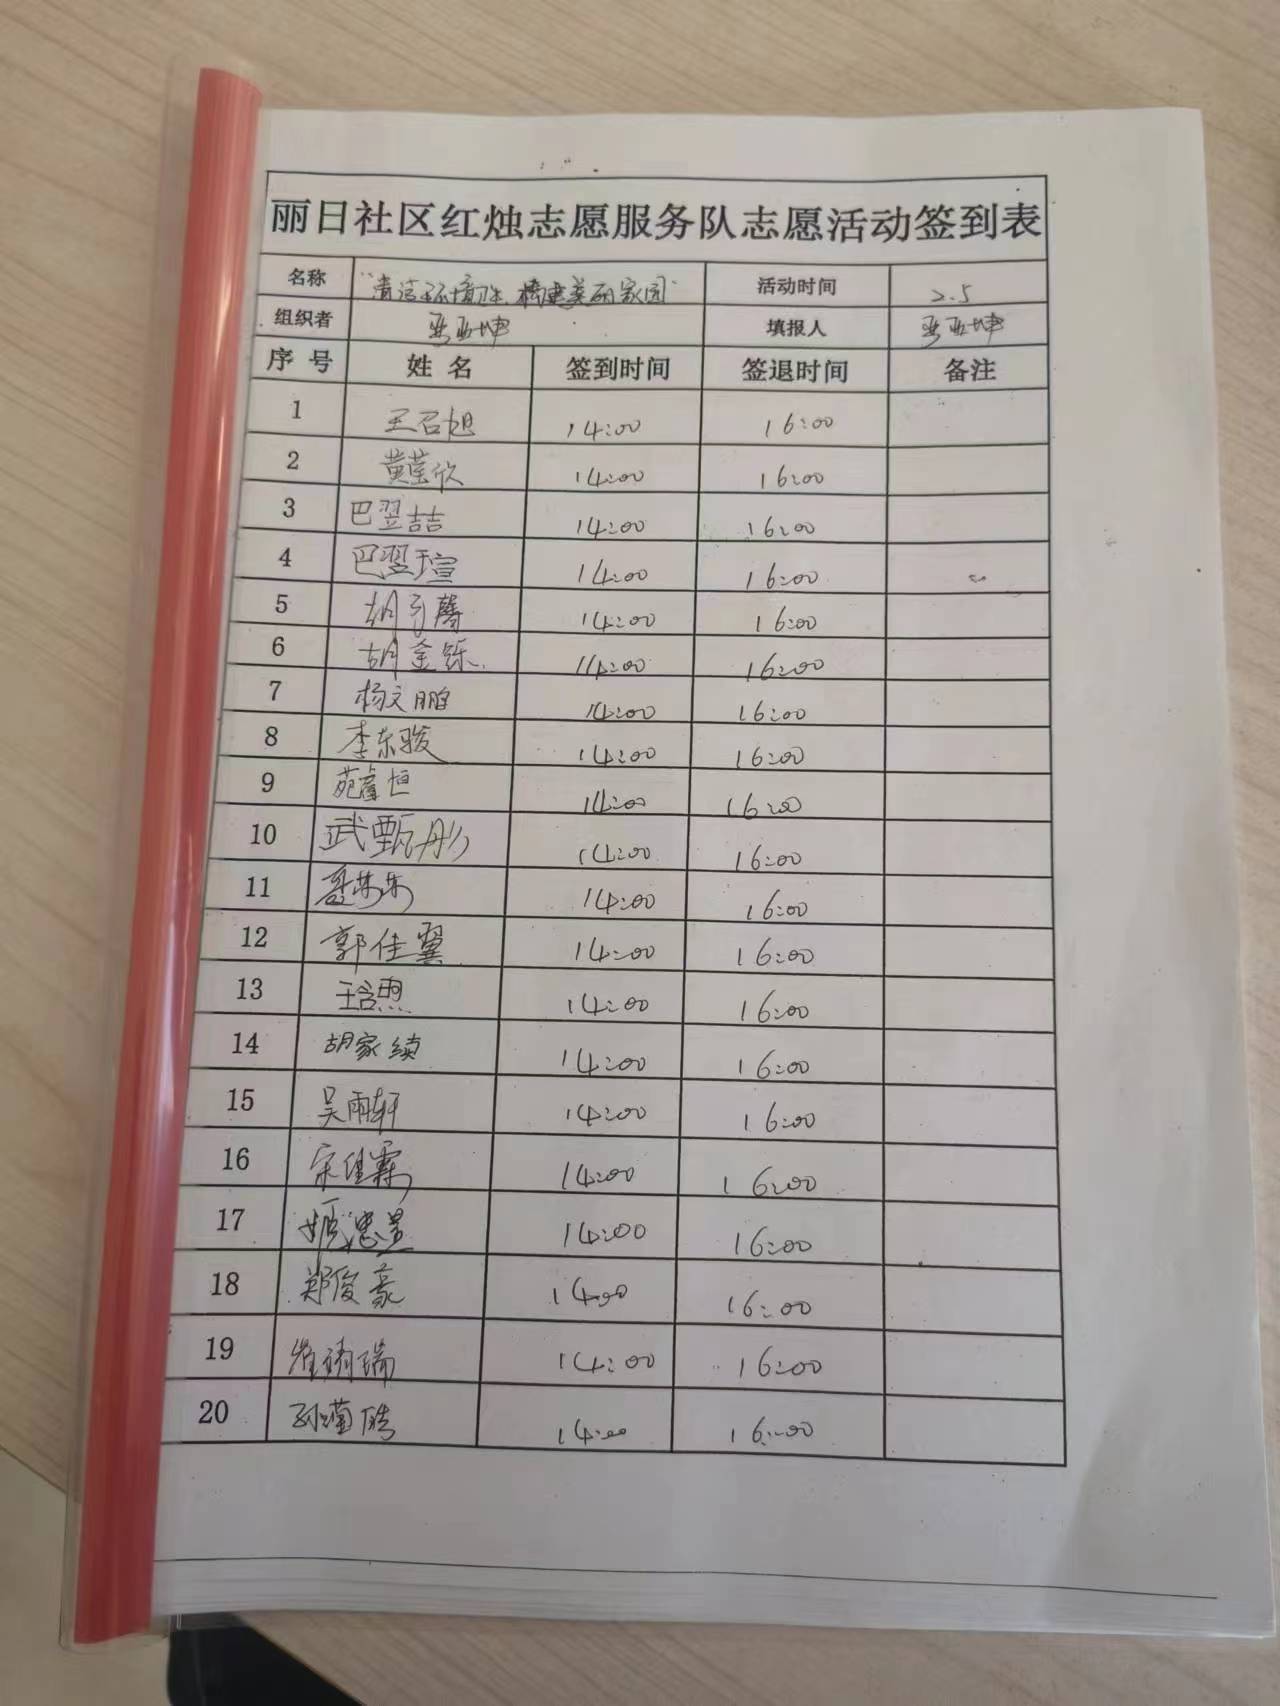 丽日社区红烛志愿服务队志愿活动签到表
名称 "清洁环境卫生,构建美丽家园" 活动时间 2.5
组织者 亚坤 填报人 亚坤
序号 姓名 签到时间 签退时间 备注
1 王召旭 14:00 16:00
2 黄莹欣 14:00 16:00
3 巴翌喆 14:00 16:00
4 巴翌瑄 14:00 16:00
5 胡馨 14:00 16:00
6 胡金铄 14:00 16:00
7 杨文鹏 14:00 16:00
8 李东骏 14:00 16:00
9 苑睿恒 14:00 16:00
10 武甄彤 14:00 16:00
11 14:00 16:00
12 郭佳翼 14:00 16:00
13 王煦 14:00 16:00
14 胡家续 14:00 16:00
15 吴雨轩 14:00 16:00
16 宋佳霖 14:00 16:00
17 姬忠昱 14:00 16:00
18 郑俊豪 14:00 16:00
19 瑞 14:00 16:00
20 孙皓 14:00 16:00